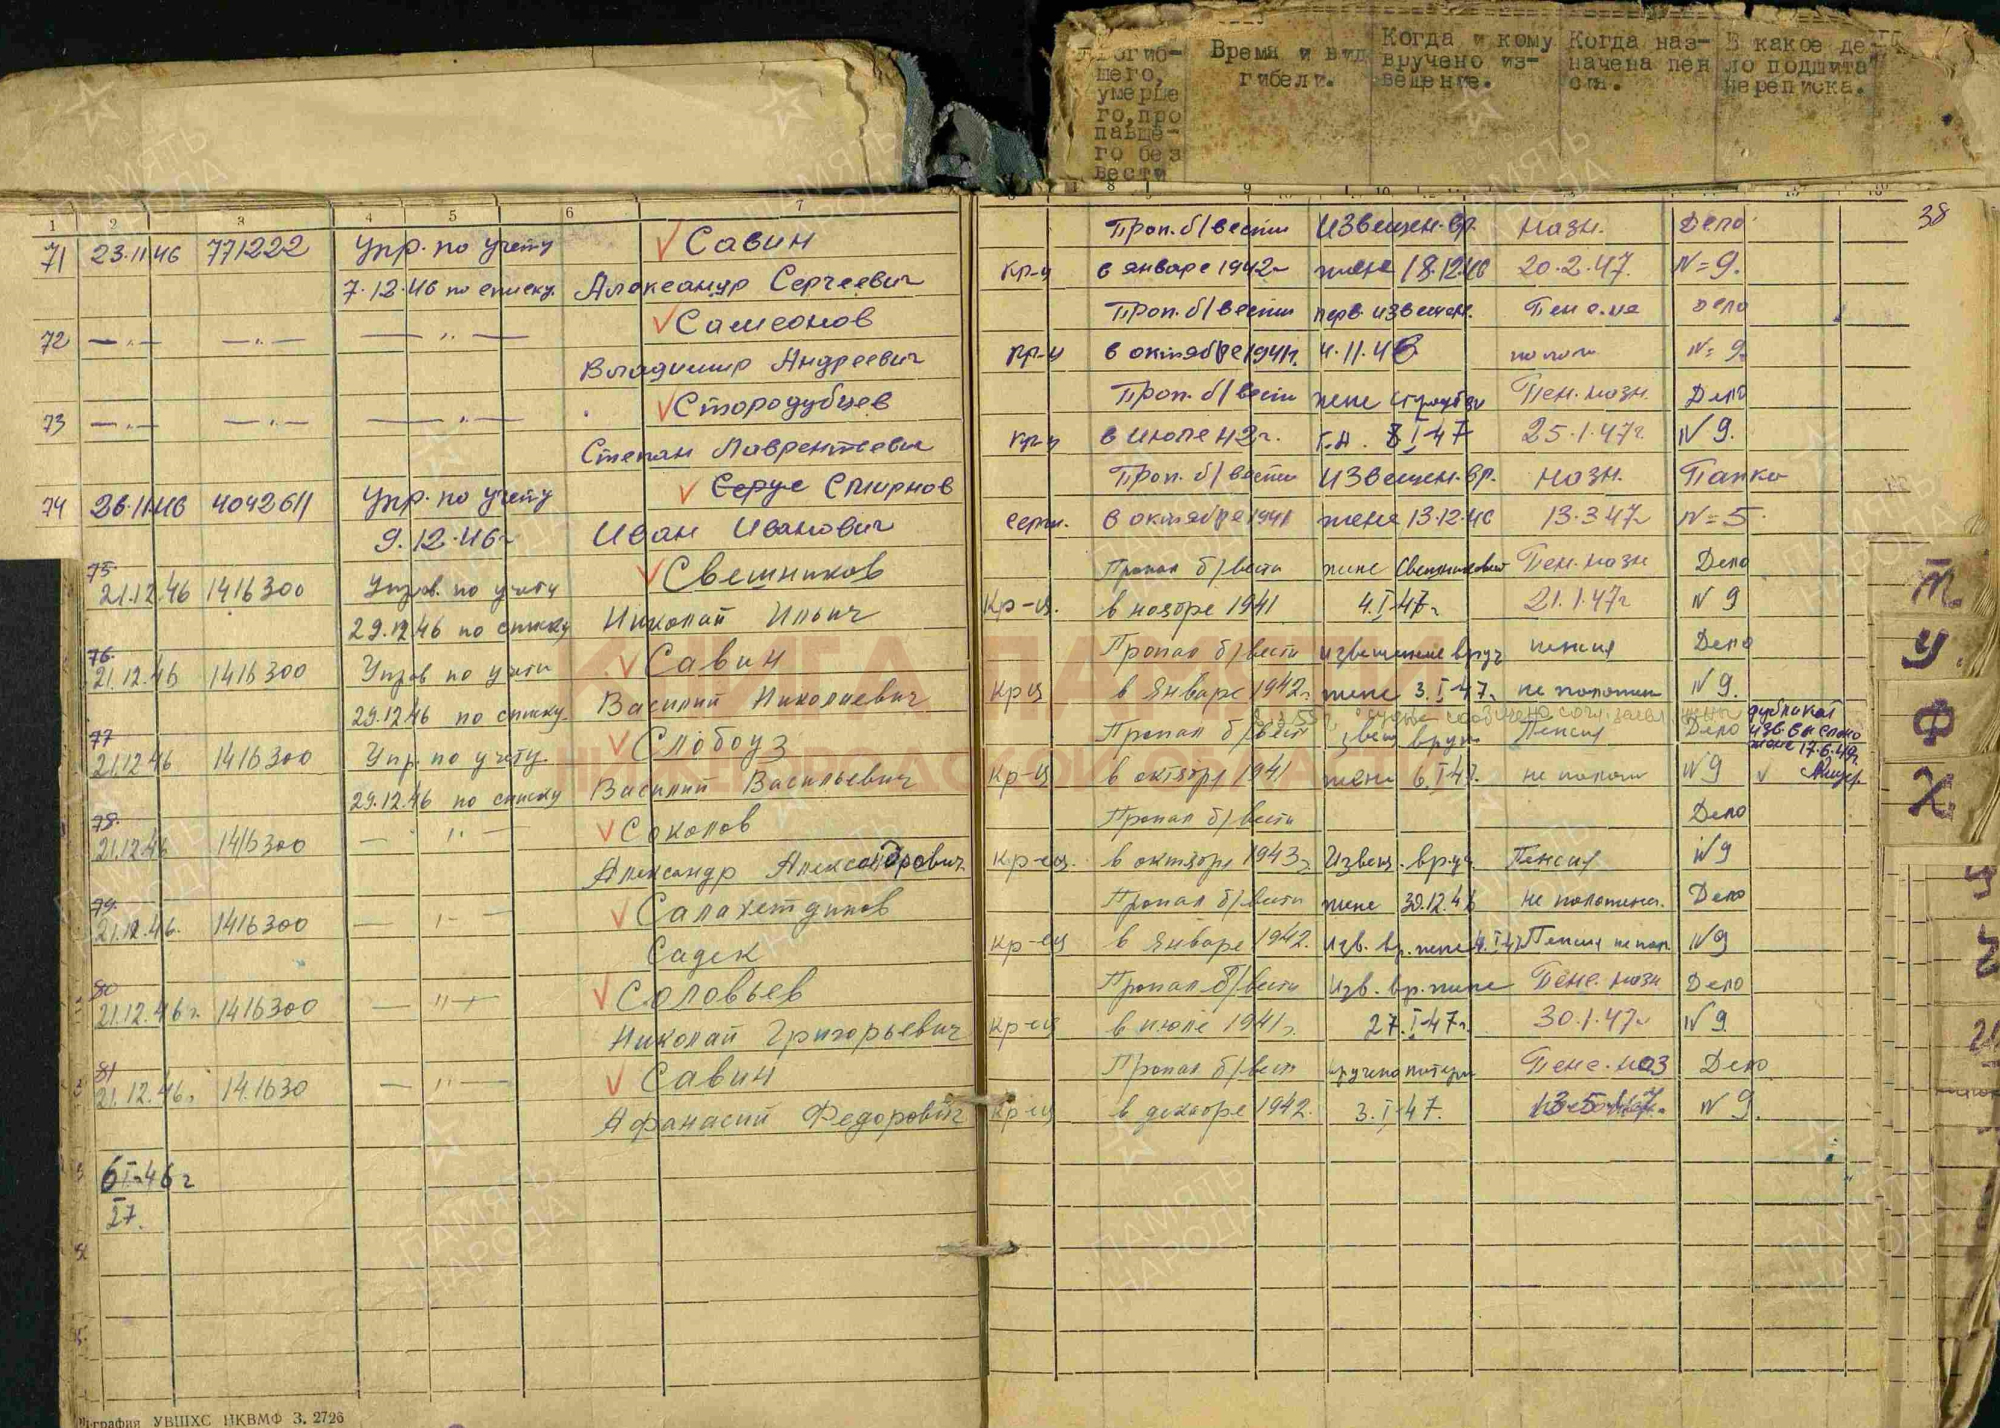 Погиб-
шего,
умерше
го, про
павше-
го без
вести
Время и вид
гибели.
Когда и кому
вручено из-
вещение.
Когда наз-
начена пен
сия.
В какое де-
ло подшита
переписка.
1 2 3 4 5 6 7 8 9 10
38
71 23.11.46 771222 Упр. по учету Савин Проп. б/вести Извещен. вр. назн. Дело
7.12.46 по списку. Александр Сергеевич кр-ц в январе 1942г жене 18.12.46 20.2.47. N=9.
72 —"— —"— —"— Самсонов Проп. б/вести перв. извещен. Дело
Владимир Андреевич кр-ц в октябре 1941г. 4.11.46 N=9.
73 —"— —"— —"— Стародубцев Проп. б/вести жене Пен. назн. Дело
Степан Лаврентьевич кр-ц в июле 42г. 8.I-47 25.1.47г. N 9.
74 26.11.46 4042611 Упр. по учету Смирнов Проп. б/вести Извещен. вр. назн. Папка
9.12.46г Иван Иванович сержн. в октябре 1941 жене 13.12.46 13.3.47г N=5.
75 21.12.46 1416300 Управ. по учету Свешников Пропал б/вести жене Свешниковой Пен. назн Дело
29.12.46 по списку Николай Ильич Кр-ц. в ноябре 1941 4.I-47г. 21.1.47г N 9
76. 21.12.46 1416300 Управ по учету Савин Пропал б/вести извещение вруч пенсия Дело
29.12.46 по списку. Василий Николаевич Кр-ц в Январе 1942г. жене 3.I-47г. не положен N 9.
77 21.12.46 1416300 Упр. по учету. Слободз Пропал б/вест извещ вруч Пенсия Дело
дубликат
изв.
жене 17.6.49г.
29.12.46 по списку Василий Васильевич Кр-ц в октябре 1941 жене 6.I-47. не полож N 9
78. 21.12.46 1416300 —"— Соколов Пропал б/вести Дело
Александр Александрович Кр-ец. в октябре 1943г. Извещ. вруч. Пенсия N 9
79. 21.12.46. 1416300 —"— Салахетдинов Пропал б/вести жене 30.12.46 не положена. Дело
Садек Кр-ец в Январе 1942. Изв. вр. жене 4.I-47 Пенсия не пол. N 9
80 21.12.46г. 1416300 —"— Соловьев Пропал б/вести Изв. вр. жене Пенс. назн Дело
Николай Григорьевич Кр-ец в июле 1941г. 27.I-47г. 30.1.47г N 9.
81 21.12.46. 141630 —"— Савин Пропал б/вест Вручено матери Пенс. наз Дело
Афанасий Федорович Кр-ец в декабре 1942. 3.I-47. N 9.
6 I-46 г
27.
Т.
У.
Ф
Х.
КНИГА ПАМЯТИ
ПАМЯТЬ
НАРОДА
УВШХС НКВМФ З. 2726